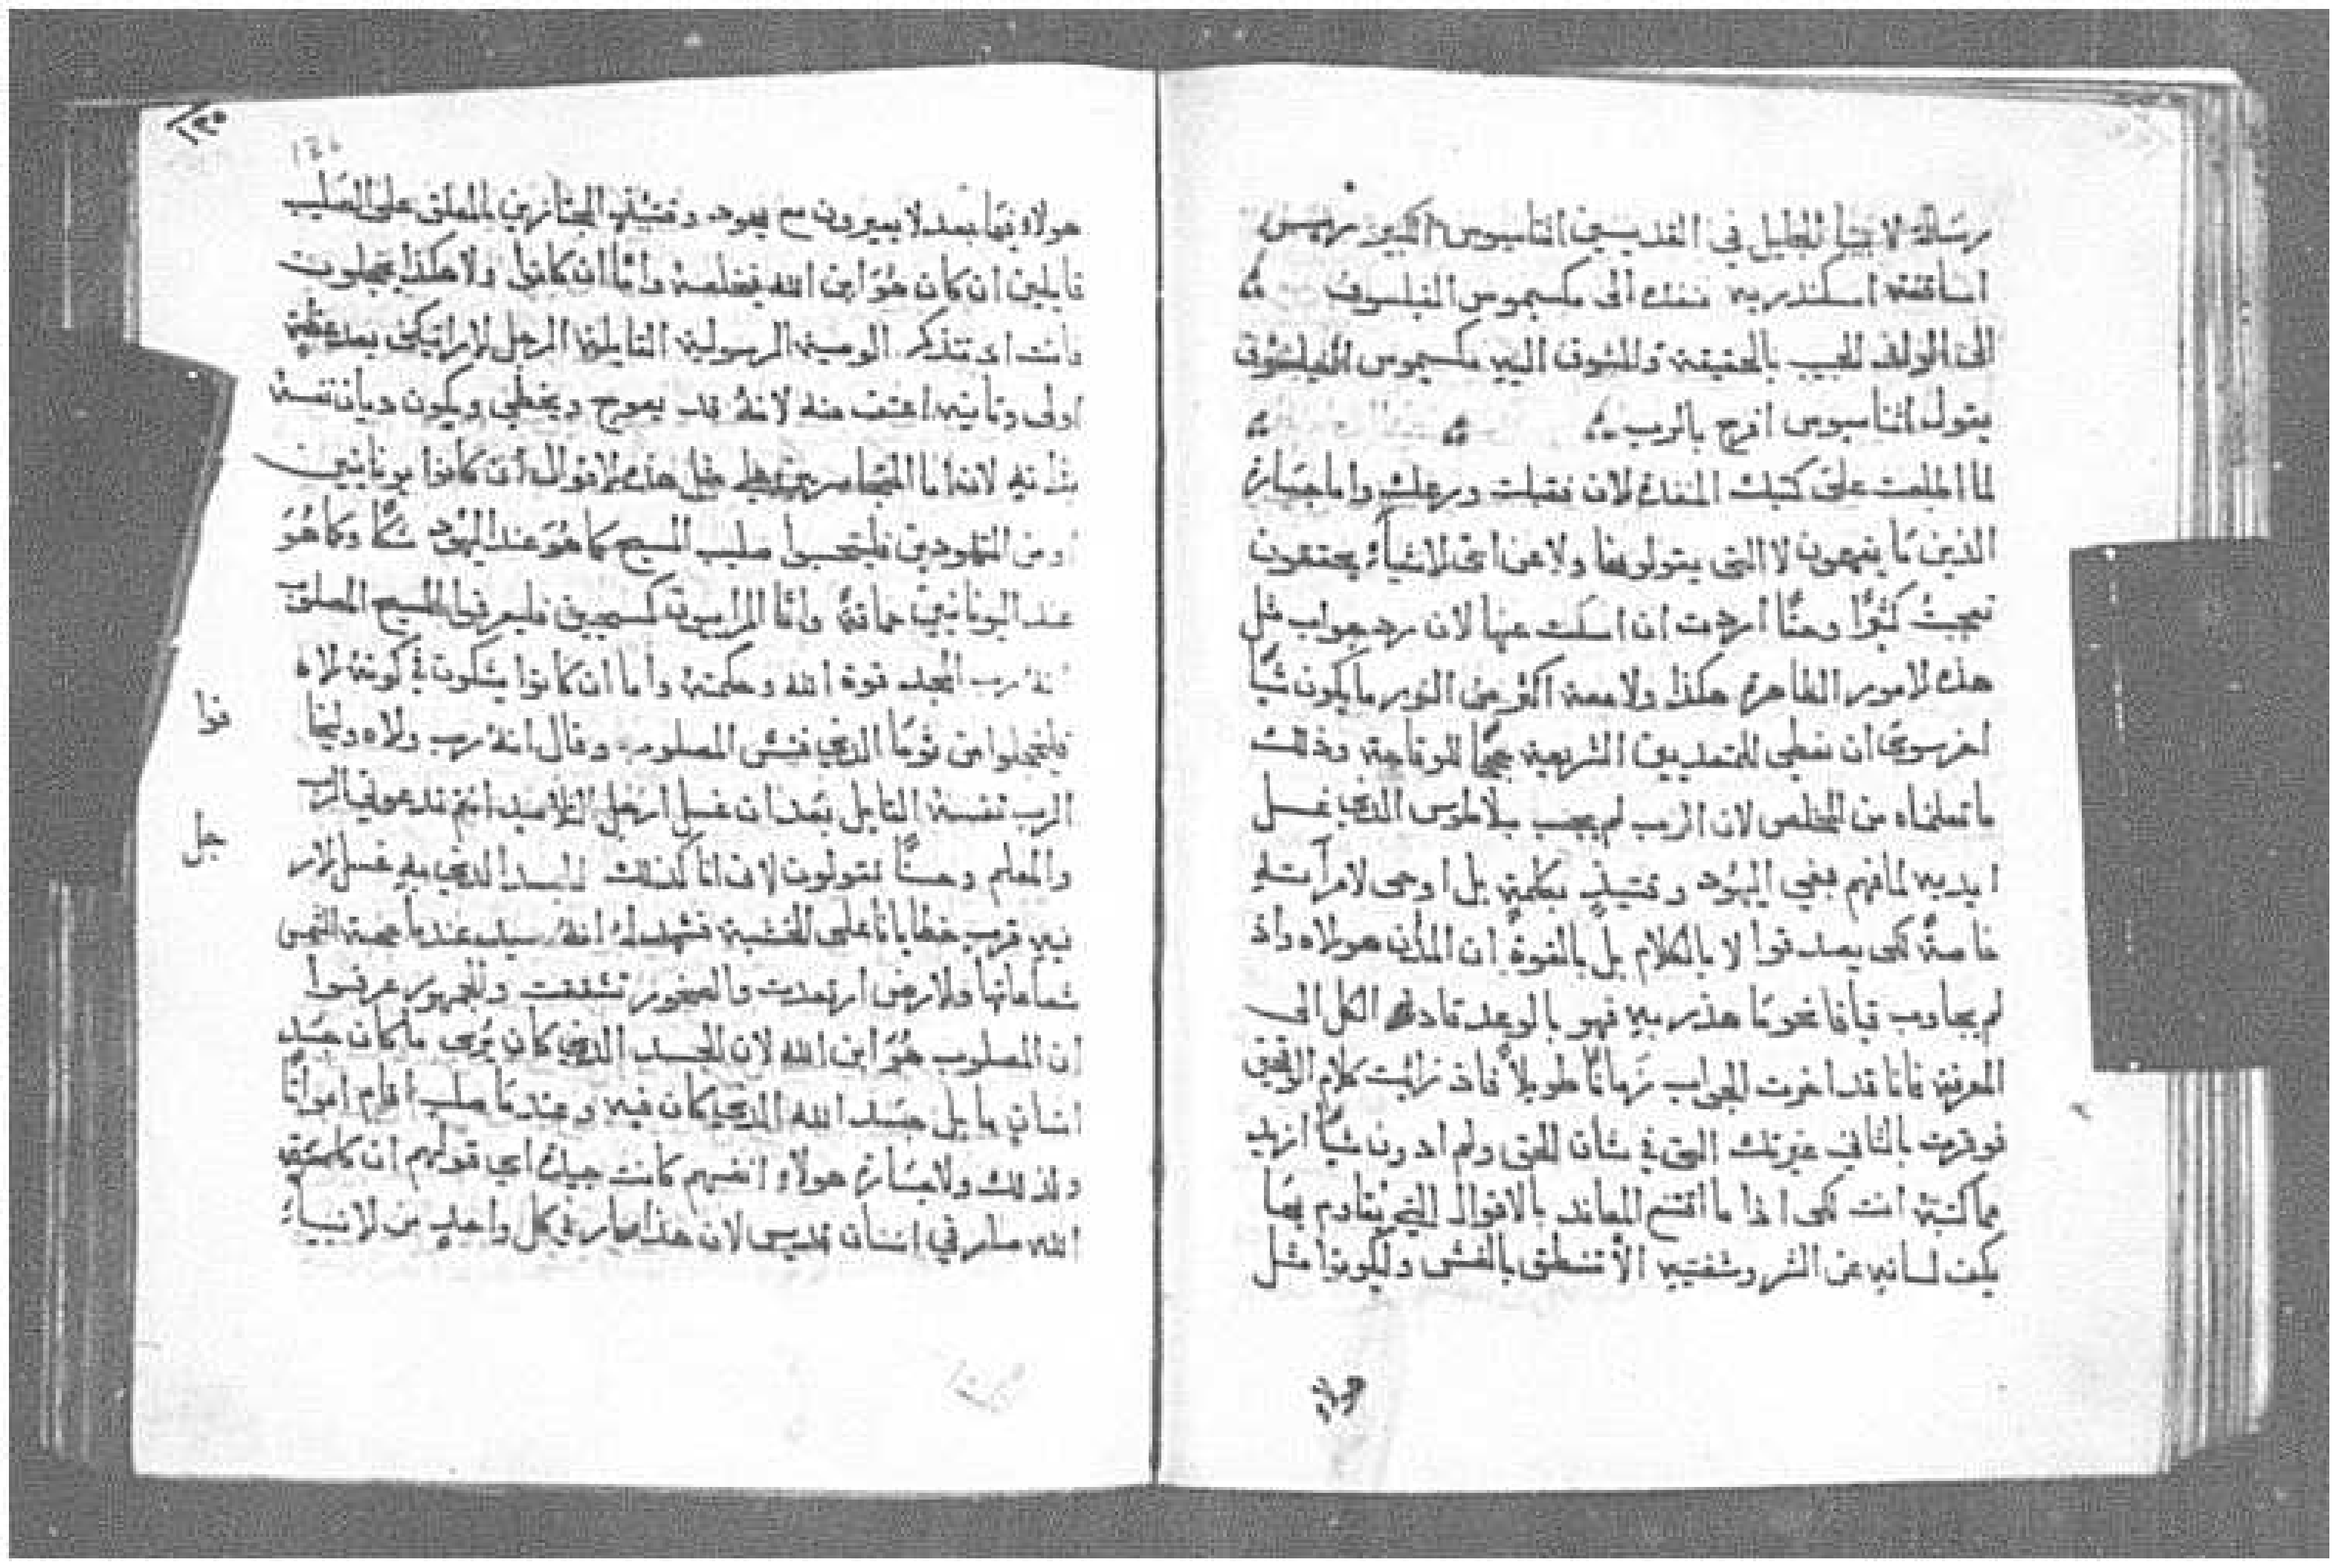 رسالة لابينا الجليل في القديسين اثناسيوس الكبير رييس
اساقفة اسكندرية نفذت الى مكسيموس الفيلسوف
الى الولد الحبيب بالحقيقة والمشوق اليه مكسيموس الفيلسوف
يقول اثناسيوس افرح بالرب
لما اطلعت على كتبك المنفذة الان فقبلت ورعك واما جسارة
الذين ما يفهمون لا التي يقولونها ولا عن اي الاشياء يحتقون
تعجبت كثيرًا وحقًا اردت ان اسكت عنها لان رد جواب مثل
هذه الامور الظاهرة هكذا ولامعة اكثر من النور ما يكون شيًا
اخر سوى ان نعطي المتعديين الشريعة حججًا للوقاحة وذلك
ما تعلمناه من المخلص لان الرب لم يجب بيلاطوس الذي غسل
ايديه لما فهم بغي اليهود وقتيذٍ بكلمة بل اوحى لامرأته
خاصةً لكي يصدقوا لا بالكلام بل بالقوة ان المدان هولاه واذ
لم يجاوب قيافا نحو ما هذر به فهو بالوعد قاد الكل الى
المعرفة فانا قد اخرت الجواب زمانًا طويلاً فاذ رايت كلام الوقحين
فوقرت بالثاني غيرتك التي في شان الحق ولم ادون شيًا ازيد
مما كتبته انت لكي اذا ما اقتنع المعاند بالاقوال التي يقاوم بها
يكف لسانه عن الشر وشفتيه الا تنطق بالغش وليكونوا مثل
هولاه
١٣٥
هولاه فيما بعد لا يصيرون مع يهود وقتيذٍ المجتازين بالمعلق على الصليب
قايلين ان كان هو ابن الله فيخلصه واما ان كانوا ولا هكذا يخجلون
فانت اذ تتذكر الوصية الرسولية القايلة الرجل الاراتيكي بعد عظة
اولى وثانية اعتف منه لانه قد يعوج ويخطي ويكون ديان نفسه
بذاته لانه اما المتجاسرين على مثل هذه الاقوال ان كانوا يونانيين
او من المتهودين فليحسبوا صليب المسيح كما هو عند اليهود شكًا وكما هو
عند اليونانيين حماقةً واما المراييون كمسيحيين فليعرفوا المسيح المصلوب
انه رب المجد قوة الله وحكمته واما ان كانوا يشكون في كونه الاه
فليخجلوا من توما الذي فتش المصلوب وقال انه رب والاه وليخافوا
الرب نفسه القايل بعد ان غسل ارجل التلاميذ انتم تدعوني الرب
والمعلم وحسنًا تقولون لاني انا كذلك الجسد الذي به غسل الارجل
فيه قرب خطايانا على الخشبة فشهد له انه سيد عندما جمعة الشمس
شعاعاتها والارض ارتعدت والصخور تشققت والجمهور عرفوا
ان المصلوب هو ابن الله لان الجسد الذي كان يرى ما كان جسد
انسانٍ ما بل جسد الله الذي كان فيه وعندما صلب اقام امواتًا
ولذلك ولا جسارة هولاه انفسهم كانت جيدة اي قولهم ان كلمة
الله صار في انسان قديس لان هذا صار في كل واحدٍ من الانبياء